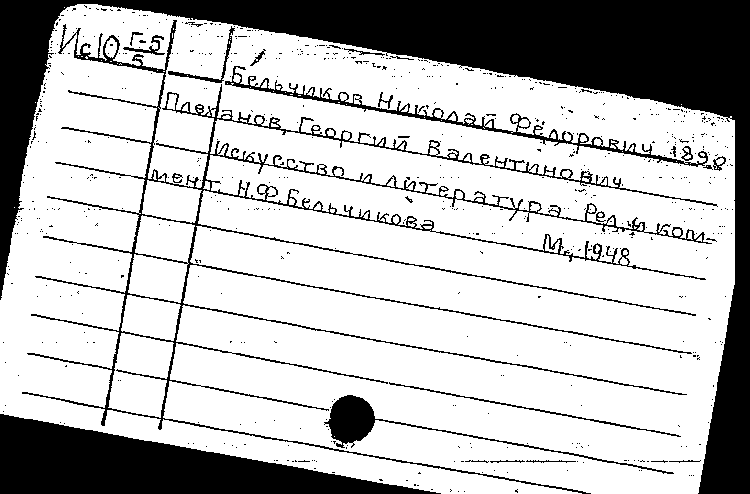 Ис10 Г-5/5
Бельчиков, Николай Фёдорович, 1890
Плеханов, Георгий Валентинович
Искусство и литература Ред. и ком-
мент. Н.Ф.Бельчикова М., 1948.